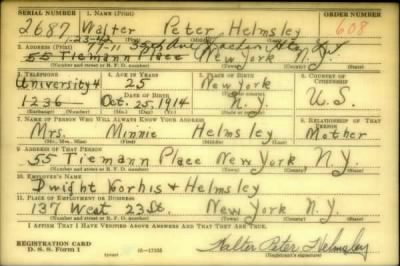 SERIAL NUMBER 1. NAME (Print) ORDER NUMBER
2687 Walter Peter Helmsley 608
(First) (Middle) (Last)
1-23-42
2. ADDRESS (Print)
55 Tiemann Place New York N.Y.
(Number and street or R. F. D. number) (Town) (County) (State)
3. TELEPHONE 4. AGE IN YEARS 5. PLACE OF BIRTH 6. COUNTRY OF CITIZENSHIP
University 4 25 New York
DATE OF BIRTH
1236 Oct. 25, 1914 N.Y. U.S.
(Exchange) (Number) (Mo.) (Day) (Yr.) (State or country)
7. NAME OF PERSON WHO WILL ALWAYS KNOW YOUR ADDRESS 8. RELATIONSHIP OF THAT PERSON
Mrs. Minnie Helmsley Mother
(Mr., Mrs., Miss) (First) (Middle) (Last)
9. ADDRESS OF THAT PERSON
55 Tiemann Place New York N.Y.
(Number and street or R. F. D. number) (Town) (County) (State)
10. EMPLOYER'S NAME
Dwight Vorhis & Helmsley
11. PLACE OF EMPLOYMENT OR BUSINESS
137 West 23 St. New York N.Y.
(Number and street or R. F. D. number) (Town) (County) (State)
I AFFIRM THAT I HAVE VERIFIED ABOVE ANSWERS AND THAT THEY ARE TRUE.
REGISTRATION CARD
D. S. S. Form 1 Walter Peter Helmsley
(Registrant's signature)